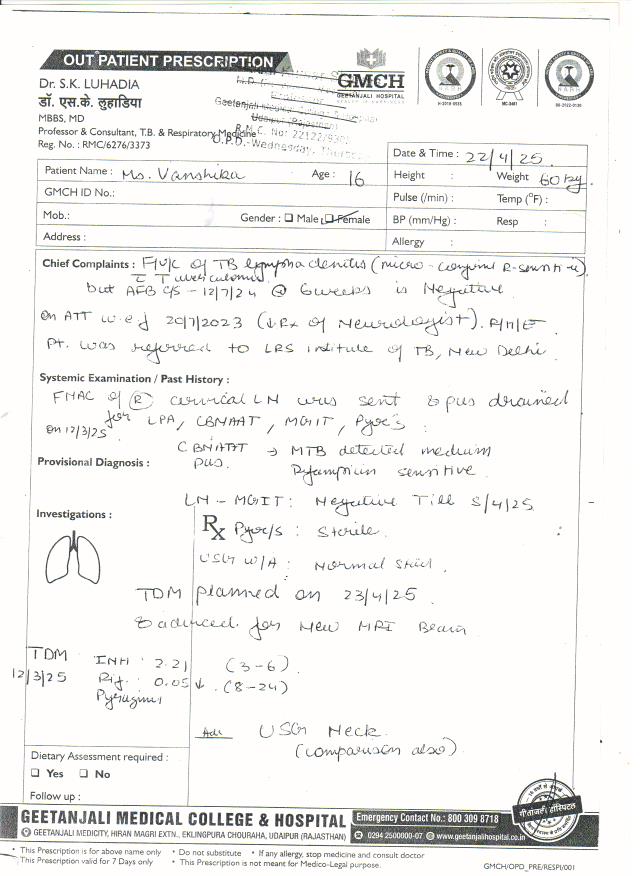 OUT PATIENT PRESCRIPTION
GMCH
GEETANJALI HOSPITAL
H-2018-0535
MC-3481
Dr. S.K. LUHADIA
डॉ. एस.के. लुहाडिया
MBBS, MD
Professor & Consultant, T.B. & Respiratory Medicine
Reg. No. : RMC/6276/3373
O.P.D.-Wednesday,
Date & Time : 22/4/25.
Patient Name : Ms. Vanshika Age : 16
Height : Weight 60 kg.
GMCH ID No.:
Pulse (/min) : Temp (°F) :
Mob.: Gender : Male Female
BP (mm/Hg) : Resp :
Address :
Allergy :
Chief Complaints : F/U/C of TB lymphadenitis (micro-confirmed R-sensitive)
c Tuberculoma
but AFB C/S - 12/7/24 @ 6 weeks is Negative
On ATT w.e.f 20/7/2023 (↓Rx of Neurologist). R/H/E
Pt. was referred to LRS institute of TB, New Delhi
Systemic Examination / Past History :
FNAC of (R) cervical LN was sent & pus drained
on 12/3/25 for LPA, CBNAAT, MGIT, Pyoc/s :
CBNAAT → MTB detected medium
Provisional Diagnosis : pus. Ryfampicin sensitive
LN - MGIT : Negative Till 5/4/25
Investigations :
Rx Pyoc/s : Sterile
USG W/A : Normal Study
TDM planned on 23/4/25.
& advised for New MRI Brain
TDM INH : 2.21 (3-6).
12/3/25 Rif : 0.05 ↓. (8-24)
Adv USG Neck
(comparison also)
Dietary Assessment required :
Yes No
Follow up :
गीतांजली हॉस्पिटल
GEETANJALI MEDICAL COLLEGE & HOSPITAL
Emergency Contact No.: 800 309 8718
GEETANJALI MEDICITY, HIRAN MAGRI EXTN., EKLINGPURA CHOURAHA, UDAIPUR (RAJASTHAN)
0294 2500000-07 www.geetanjalihospital.co.in
• This Prescription is for above name only • Do not substitute • If any allergy, stop medicine and consult doctor
• This Prescription valid for 7 Days only • This Prescription is not meant for Medico-Legal purpose.
GMCH/OPD_PRE/RESPI/001